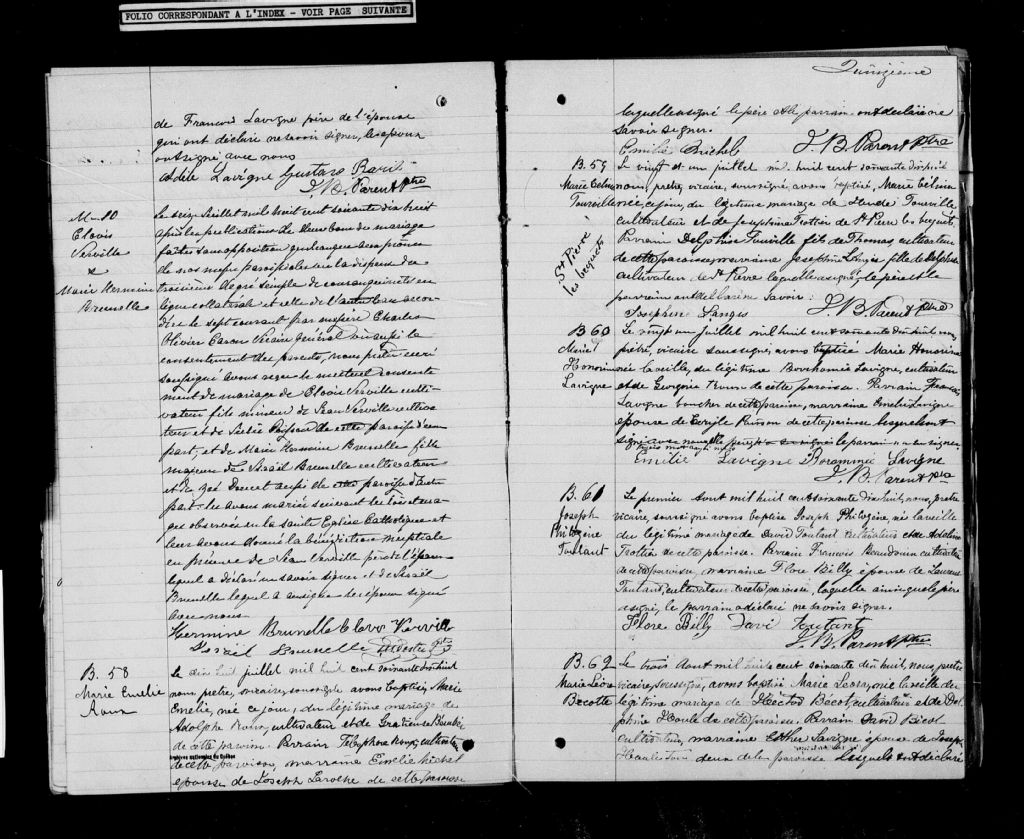 FOLIO CORRESPONDANT A L'INDEX - VOIR PAGE SUIVANTE
de Francois Lavigne père de l'épouse
qui ont déclaré ne savoir signer, les époux
ont signé avec nous
Adèle Lavigne Gustave
J. B. Parent Ptre
M-10
Clovis
Verville
&
Marie Hermine
Brunelle
Le seize Juillet mil huit cent soixante dix huit
après les publications de deux bans de mariage
faites sans opposition quelconque aux prônes
de nos messes paroissiales vu la dispense du
troisième degré simple de consanguinité en
ligne collatérale et celle de l'autre ban accor-
dée le sept courant par messire Charles
Olivier Caron Vicaire Général vu aussi le
consentement des parents, nous prêtre curé
soussigné avons reçu le mutuel consente
ment de mariage de Clovis Verville culti-
vateur fils mineur de Jean Verville cultiva
teur et de de cette paroisse d'une
part, et de Marie Hermine Brunelle fille
majeure de Israël Brunelle cultivateur
et de Doucet aussi de cette paroisse d'autre
part, les avons mariés suivant les lois et usa-
ges observés en la Sainte Eglise Catholique et
leur avons donné la bénédiction nuptiale
en présence de Jean Verville père de l'époux
lequel a déclaré ne savoir signer et de Israël
Brunelle lequel a signé les époux signé
avec nous
Hermine Brunelle Clovs Vervill
Israël Brunelle
B. 58
Marie Emelie
Roux
Le dix huit juillet mil huit cent soixante dix huit
nous, prêtre, vicaire, soussigné avons baptisé, Marie
Emelie, née ce jour, du légitime mariage de
Adolphe Roux, cultivateur et de
de cette paroisse. Parrain Telesphore Roux, cultivateur
Archives nationales du Québec
de cette paroisse, marraine Emelie Michel
épouse de Joseph Laroche de cette paroisse
Quinzième
laquelle a signé le père et le parrain ont déclaré ne
savoir signer.
Emilie
J. B. Parent Ptre
B. 59
Marie Celina
Tourville
St Pierre
les becquets
Le vingt et un juillet mil huit cent soixante dix huit
nous, prêtre, vicaire, soussigné, avons baptisé, Marie Celina
née ce jour, du légitime mariage de Tourville
cultivateur et de Josephine Trottier de St Pierre les becquets.
Parrain Delphis Tourville fils de Thomas, cultivateur
de cette paroisse, marraine Josephine fille de
cultivateur de St Pierre laquelle a signé, le père et le
parrain ont déclaré ne savoir.
Josephine Langis
J. B. Parent Ptre
B 60
Marie
Honorine
Lavigne
Le vingt un juillet mil huit cent soixante dix huit nous
prêtre, vicaire soussigné, avons baptisé Marie Honorine
née la veille, du légitime Borhomée Lavigne, cultivateur
et de Georgina de cette paroisse. Parrain Francois
Lavigne boucher de cette paroisse, marraine Emelie Lavigne
épouse de de cette paroisse lesquels ont
signé avec nous
Emilie Lavigne Borommée Lavigne
J. B. Parent Ptre
B. 61
Joseph
Philogène
Toutant
Le premier Aout mil huit cent soixante dix huit, nous, prêtre
vicaire, soussigné avons baptisé Joseph Philogène, né la veille
du légitime mariage de David Toutant cultivateur et de Adeline
Trottier de cette paroisse. Parrain Francois Beaudouin cultivateur
de cette paroisse, marraine Flore Billy épouse de Laurent
Toutant, cultivateur de cette paroisse, laquelle ainsi que le père
a signé, le parrain a déclaré ne savoir signer.
Flore Billy Davé Toutant
J. B. Parent Ptre
B. 62
Marie Léosa
Becotte
Le trois Aout mil huit cent soixante dix huit, nous, prêtre
vicaire, soussigné, avons baptisé Marie Leosa, née la veille du
légitime mariage de Hector Bécot, cultivateur et de Del-
phine Houle de cette paroisse. Parrain David Bécot
cultivateur, marraine Esther Lavigne épouse de Joseph
Houle tous deux de la paroisse lesquels ont déclaré